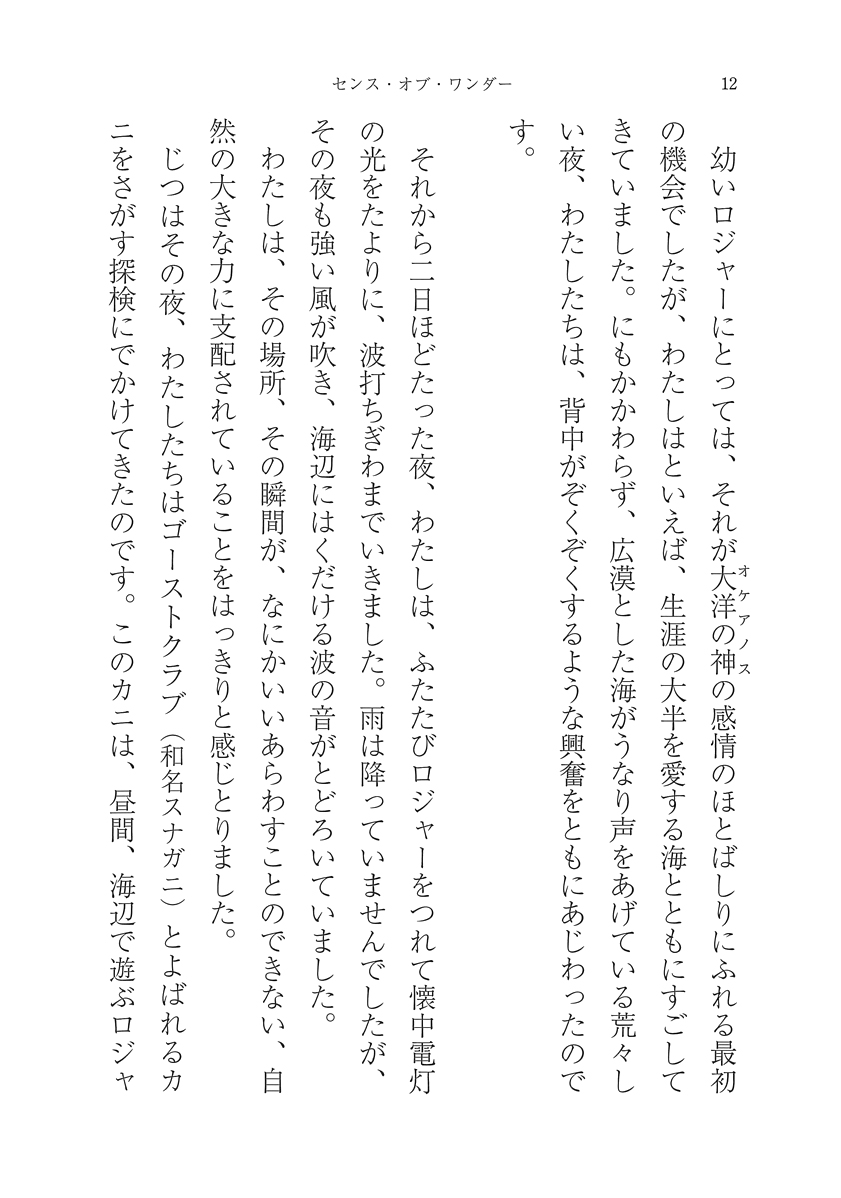 センス・オブ・ワンダー
12
幼いロジャーにとっては、それが大洋の神の感情のほとばしりにふれる最初
オケアノス
の機会でしたが、わたしはといえば、生涯の大半を愛する海とともにすごして
きていました。にもかかわらず、広漠とした海がうなり声をあげている荒々し
い夜、わたしたちは、背中がぞくぞくするような興奮をともにあじわったので
す。
それから二日ほどたった夜、わたしは、ふたたびロジャーをつれて懐中電灯
の光をたよりに、波打ちぎわまでいきました。雨は降っていませんでしたが、
その夜も強い風が吹き、海辺にはくだける波の音がとどろいていました。
わたしは、その場所、その瞬間が、なにかいいあらわすことのできない、自
然の大きな力に支配されていることをはっきりと感じとりました。
じつはその夜、わたしたちはゴーストクラブ（和名スナガニ）とよばれるカ
ニをさがす探検にでかけてきたのです。このカニは、昼間、海辺で遊ぶロジャ